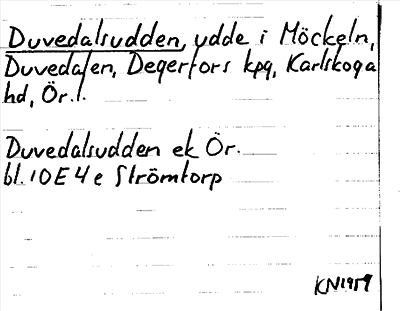 Duvedalsudden, udde i Möckeln,
Duvedalen, Degerfors kpg, Karlskoga
hd, Ör. l.
Duvedalsudden ek Ör.
bl. 10E4e Strömtorp
KN1959